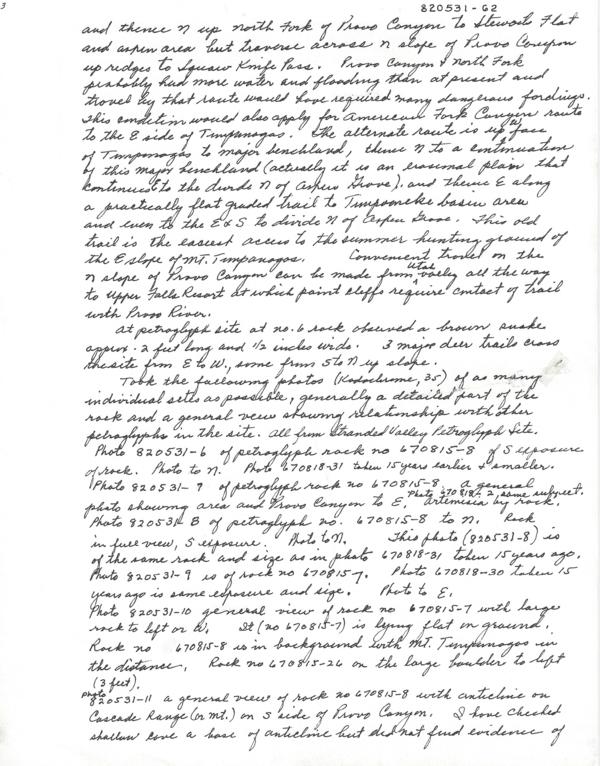 3
820531-62
and thence N up North Fork of Provo Canyon to Stewarts Flat
and aspen area but traverse across N slope of Provo Canyon
up ridges to Squaw Knife Pass. Provo Canyon & North Fork
probably had more water and flooding than at present and
travel by that route would have required many dangerous fordings.
This condition would also apply for American Fork Canyon route
to the E side of Timpanogas. The alternate route is up W face
of Timpanogas to major benchland, thence N to a continuation
of this major benchland (actually it is an erosional plain that
continues to the divide N of Aspen Grove), and thence E along
a practically flat graded trail to Timpomeke basin area
and even to the E & S to divide N of Aspen Grove. This old
trail is the easiest access to the summer hunting ground of
the E slope of Mt. Timpanogas. Convenient travel on the
N slope of Provo Canyon can be made from Utah valley all the way
to Upper Falls Resort at which point cliffs require contact of trail
with Provo River.
At petroglyph site at no. 6 rock observed a brown snake
approx. 2 feet long and 1/2 inches wide. 3 major deer trails cross
the site from E to W, some from S to N up slope.
Took the following photos (Kodachrome, 35) of as many
individual sites as possible, generally a detailed part of the
rock and a general view showing relationship with other
petroglyphs in the site. All from Stranded Valley Petroglyph Site.
Photo 820531-6 of petroglyph rock no 670815-8 of S exposure
of rock. Photo to N. Photo 670818-31 taken 15 years earlier & smaller.
Photo 820531-7 of petroglyph rock no 670815-8, a general
photo showing area and Provo Canyon to E. Photo 670818-2, same subject. Artemisia by rock.
Photo 820531-8 of petroglyph no. 670815-8 to N. Rock
in full view, S exposure. Photo to N. This photo (820531-8) is
of the same rock and size as in photo 670818-31 taken 15 years ago.
Photo 820531-9 is of rock no 670815-7. Photo 670818-30 taken 15
years ago is same exposure and size. Photo to E.
Photo 820531-10 general view of rock no 670815-7 with large
rock to left or W. It (no 670815-7) is lying flat on ground.
Rock no 670815-8 is in background with Mt. Timpanogas in
the distance. Rock no 670815-26 on the large boulder to left
(3 feet).
Photo 820531-11 a general view of rock no 670815-8 with anticline on
Cascade Range (or Mt.) on S side of Provo Canyon. I have checked
shallow cave a base of anticline but did not find evidence of